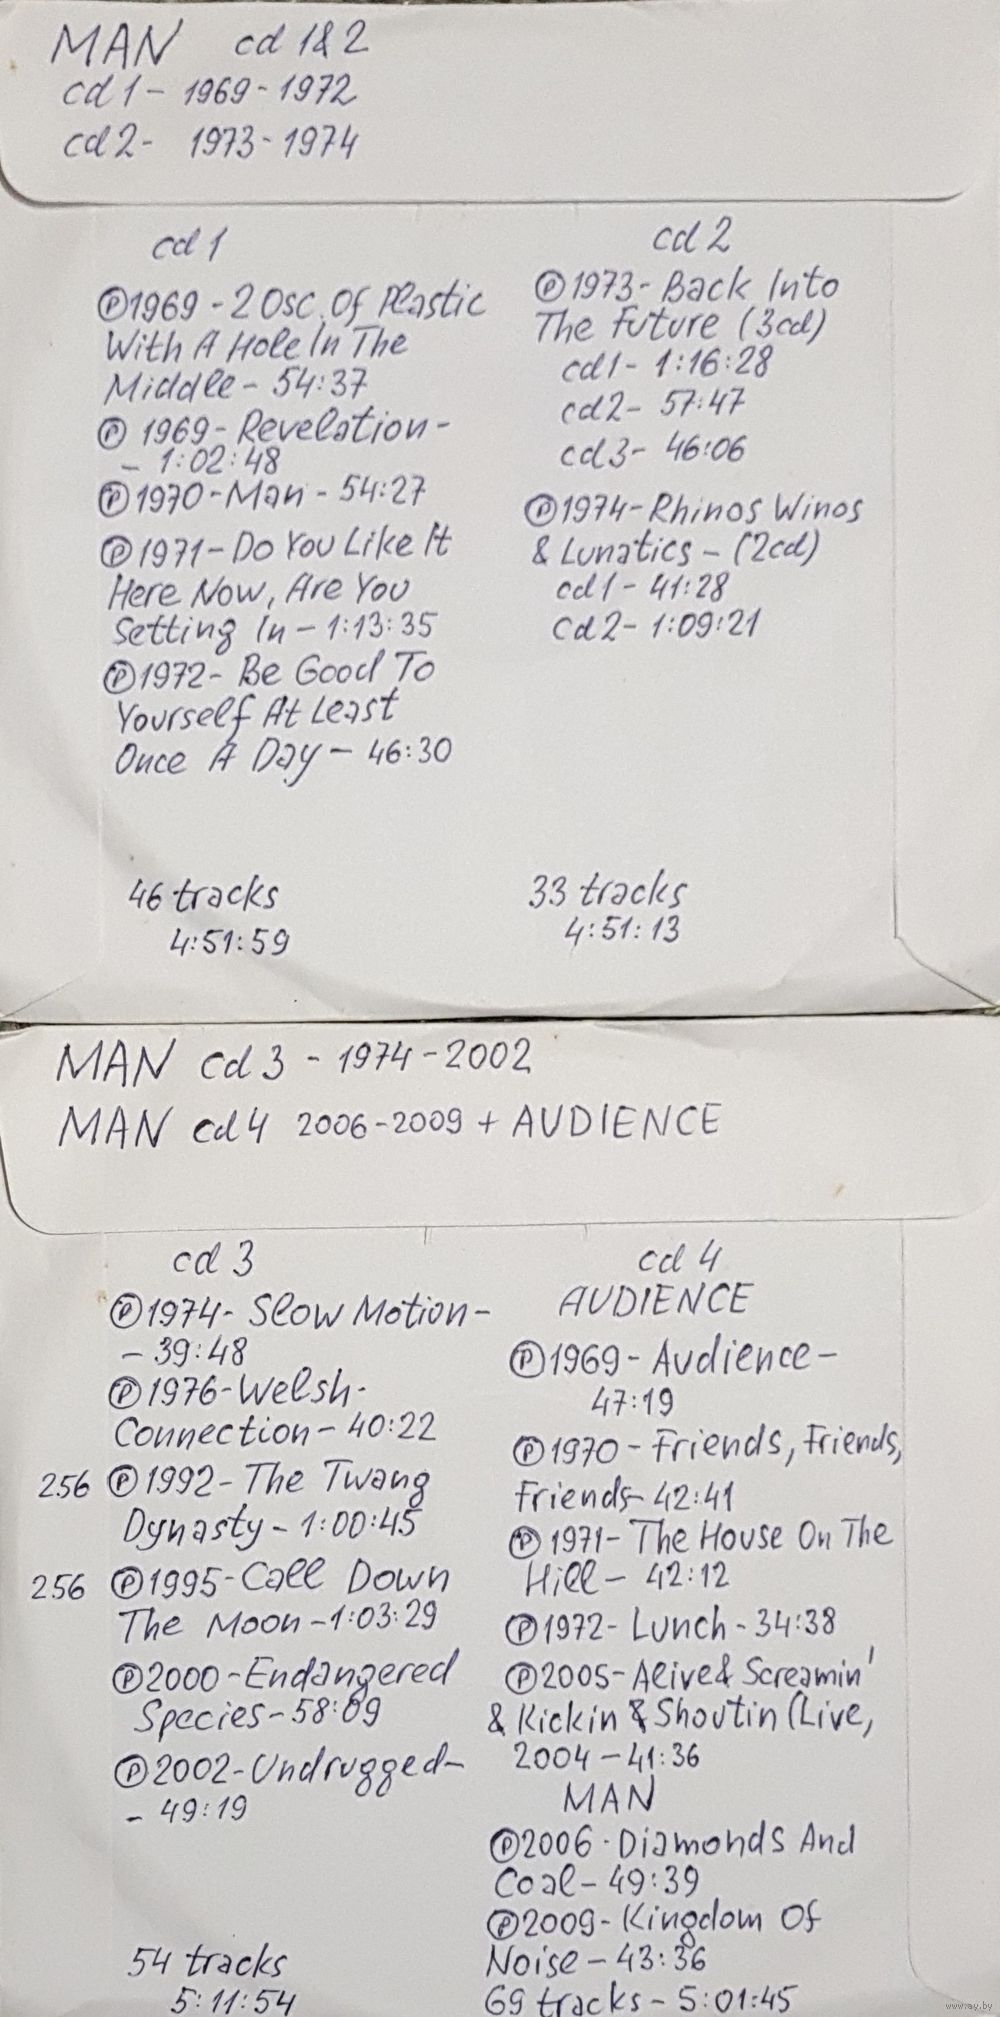 MAN cd 1&2
cd 1 - 1969 - 1972
cd 2 - 1973 - 1974
cd 1
Ⓟ1969 - 2 Osc. Of Plastic
With A Hole In The
Middle - 54:37
Ⓟ 1969 - Revelation -
- 1:02:48
Ⓟ1970 - Man - 54:27
Ⓟ1971 - Do You Like It
Here Now, Are You
Setting In - 1:13:35
Ⓟ1972 - Be Good To
Yourself At Least
Once A Day - 46:30
46 tracks
4:51:59
cd 2
Ⓟ1973 - Back Into
The Future (3cd)
cd1 - 1:16:28
cd2 - 57:47
cd3 - 46:06
Ⓟ1974 - Rhinos Winos
& Lunatics - (2cd)
cd1 - 41:28
cd2 - 1:09:21
33 tracks
4:51:13
MAN cd 3 - 1974 - 2002
MAN cd 4 2006 - 2009 + AUDIENCE
cd 3
Ⓟ1974 - Slow Motion -
- 39:48
Ⓟ1976 - Welsh -
Connection - 40:22
256 Ⓟ1992 - The Twang
Dynasty - 1:00:45
256 Ⓟ1995 - Call Down
The Moon - 1:03:29
Ⓟ2000 - Endangered
Species - 58:09
Ⓟ2002 - Undrugged -
- 49:19
54 tracks
5:11:54
cd 4
AUDIENCE
Ⓟ1969 - Audience -
47:19
Ⓟ1970 - Friends, Friends,
Friends - 42:41
Ⓟ1971 - The House On The
Hill - 42:12
Ⓟ1972 - Lunch - 34:38
Ⓟ2005 - Alive & Screamin'
& Kickin & Shoutin (Live,
2004 - 41:36
MAN
Ⓟ2006 - Diamonds And
Coal - 49:39
Ⓟ2009 - Kingdom Of
Noise - 43:36
69 tracks - 5:01:45
www.ay.by